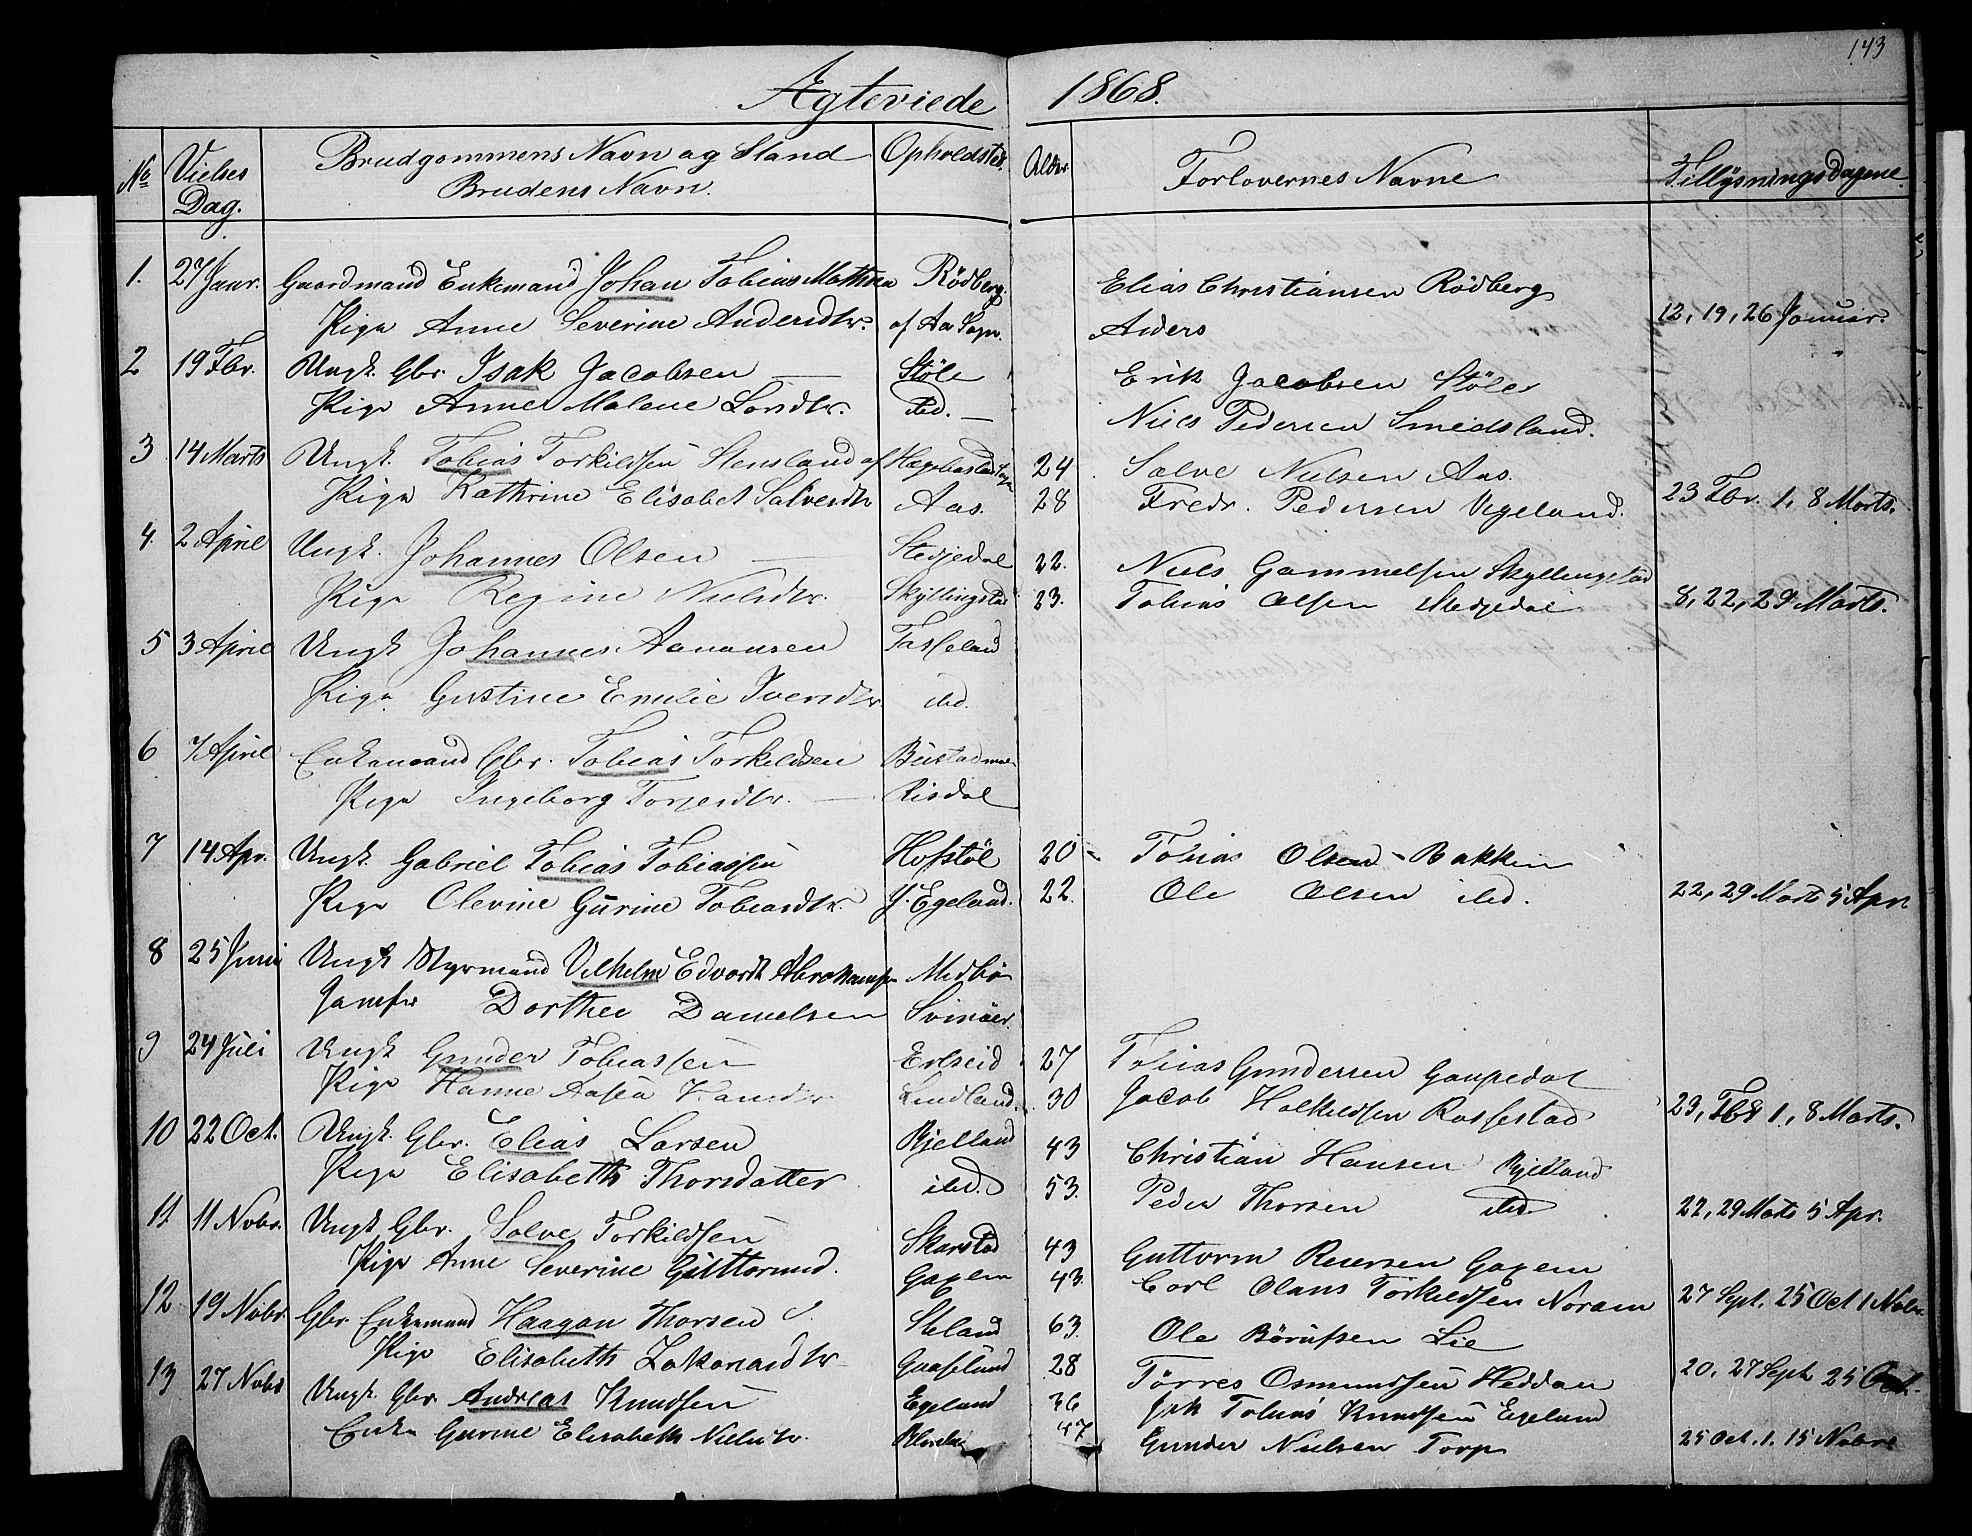 143
Ægteviede 1868.
No Vielses Dag. Brudgommens Navn og Stand Brudens Navn. Opholdsted Alder Forlovernes Navne Tillysningsdagene.
1. 27 Janr. Gaardmand Enkemand Johan Tobias Mathisen Rödberg. Elias Christiansen Rödberg
Pige Anne Severine Andersdtr. af Aa Sogn. Anders 12, 19, 26 Januar.
2 19 Fbr. Ungk. Gbr. Isak Jacobsen Støle Erik Jacobsen Støle
Pige Anne Malene Larsdtr. ibd. Niels Pedersen Smedsland.
3 14 Marts Ungk. Tobias Torkildsen Stensland af Hægebostad Sogn 24 Salve Nielsen Aas.
Pige Kathrine Elisabet Salvesdtr Aas. 28 Fredr. Pedersen Vegeland. 23 Fbr. 1, 8 Marts.
4. 2 April Ungk. Johannes Olsen Stedjedal 22. Niels Gammelsen Skyllingstad
Pige Regine Nielsdtr. Skyllingstad 23. Tobias Olsen Stedjedal 8, 22, 29 Marts.
5 3 April Ungk Johannes Aanonsen Fasseland
Pige Gustine Emilie Iversdtr ibd.
6 7 April Enkemand Gbr. Tobias Torkildsen
Pige Ingeborg Torjersdtr. Risdal
7 14 Apr. Ungk. Gabriel Tobias Tobiassen Hofstøl 20 Tobias Olsen Bakken
Pige Olevine Gurine Tobiasdtr. Y. Egeland. 22. Ole Olsen ibd. 22, 29 Marts 5 Apr.
8 25 Juni Ungk Styrmand Vilhelm Edvardt Abrahamsen Medbø
Jomfr Dorthee Danielsen Svinöer.
9 24 Juli Ungk Gunder Tobiassen Erlseid 27 Tobias Gundersen Gaupedal
Pige Hanne Aasea Hansdtr. Lindland. 30 Jacob Holkildsen Rossestad 23, Fbr 1, 8 Marts.
10 22 Oct. Ungk. Gbr. Elias Larsen Kjelland 43 Christian Hansen Kjelland
Pige Elisabeth Thorsdatter ibd. 53. Peder Thorsen ibd. 22, 29 Marts 5 Apr.
11 11 Nobr. Ungk Gbr. Salve Torkildsen Skarstad 43 Guttorm Reiersen Gaxem
Pige Anne Severine Guttormsd. Gaxem 43. Carl Olaus Torkildsen Noraem 27 Spt. 25 Oct 1 Nobr.
12 19 Nobr. Gbr. Enkemand Haagan Thorsen Steland 63. Ole Börufsen Lie
Pige Elisabeth Zakariasdtr Guaselund 28 Törres Osmundsen Heddan 20, 27 Sept. 25 Oct.
13 27 Nobr Ungk. Gbr. Andreas Knudsen Egeland 36 Tobias Knudsen Egeland
Enke Gurine Elisabeth Nielsdtr. 47 Gunder Nielsen Torp 25 Oct. 1. 15 Nobr.